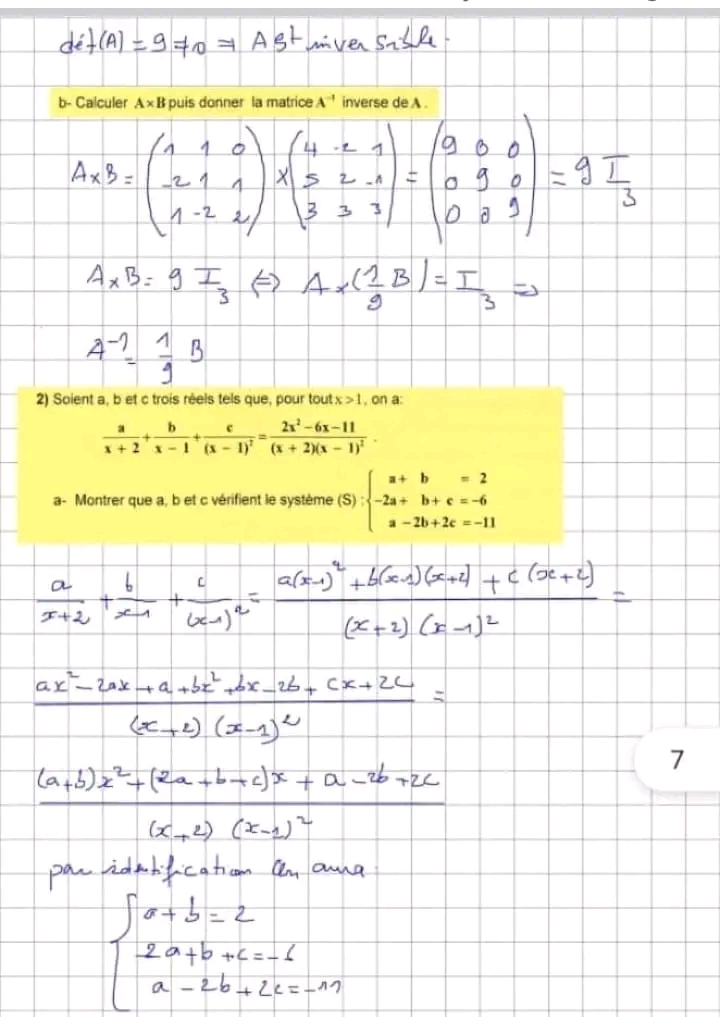 dét(A) = 9 ≠ 0 ⇒ A est inversible.
b- Calculer A×B puis donner la matrice A⁻¹ inverse de A.
A×B = (1 1 0 ; -2 1 1 ; 1 -2 2) × (4 -2 1 ; 5 2 -1 ; 3 3 3) = (9 0 0 ; 0 9 0 ; 0 0 9) = 9 I₃
A×B = 9 I₃ ⇔ A×(1/9 B) = I₃ ⇒
A⁻¹ = 1/9 B
2) Soient a, b et c trois réels tels que, pour tout x>1, on a:
a/(x + 2) + b/(x – 1) + c/(x – 1)² = (2x² – 6x – 11)/((x + 2)(x – 1)²) .
a- Montrer que a, b et c vérifient le système (S) : { a + b = 2
-2a + b + c = -6
a – 2b + 2c = -11
a/(x+2) + b/(x-1) + c/(x-1)² = (a(x-1)² + b(x-1)(x+2) + c(x+2))/((x+2)(x-1)²) =
(ax² - 2ax + a + bx² + bx - 2b + cx + 2c)/((x+2)(x-1)²) =
((a+b)x² + (-2a+b+c)x + a - 2b + 2c)/((x+2)(x-1)²)
par identification on aura
{ a + b = 2
-2a + b + c = -6
a - 2b + 2c = -11
7